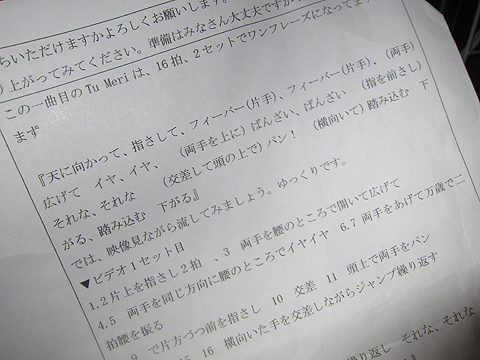 ちいただけますかよろしくお願いします。
）上がってみてください。準備はみなさん大丈夫ですか
この一曲目の Tu Meri は、16 拍、2 セットでワンフレーズになってます
まず
『天に向かって、指さして、フィーバー(片手)、フィーバー(片手)、（両手）
広げて　イヤ、イヤ、　（両手を上に）ばんざい、ばんざい　（指を前さし）
それな、それな　　（交差して頭の上で）パン！　（横向いて）踏み込む　下
がる、踏み込む　下がる』
では、映像見ながら流してみましょう。ゆっくりです。
▼ビデオ 1 セット目
1.2 片上を指さし 2 拍　、3　両手を腰のところで開いて広げて
4.5　両手を同じ方向に腰のところでイヤイヤ　6.7 両手をあげて万歳で二
拍腰を振る
9　で片方づつ前を指さし　10　交差　11　頭上で両手をパン
15　16　横向いた手を交差しながらジャンプ繰り返す
繰り返し　それな、それな